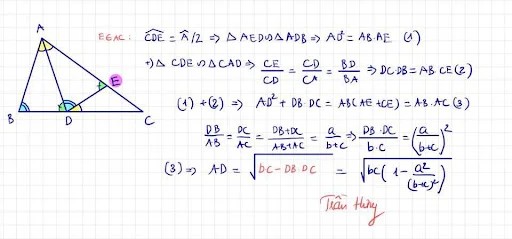 A
E
B
D
C
E∈AC: \widehat{CDE} = \widehat{A}/2 ⇒ △AED ∽ △ADB ⇒ AD² = AB.AE (1)
+) △CDE ∽ △CAD ⇒ CE/CD = CD/CA = BD/BA ⇒ DC.DB = AB.CE (2)
(1) + (2) ⇒ AD² + DB.DC = AB(AE+CE) = AB.AC (3)
DB/AB = DC/AC = DB+DC/AB+AC = a/b+c ⇒ DB.DC/b.c = (a/b+c)²
(3) ⇒ AD = √(bc - DB.DC) = √(bc(1 - a²/(b+c)²))
Trần Hưng